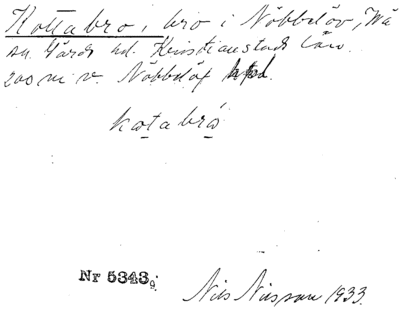 Kottabro, bro i Nöbbelöv, Wä
sn. Gärds hd. Kristianstads län.
200 m v. Nöbbelöf
kotabrö
Nr 5343
Nils Nilsson 1933.